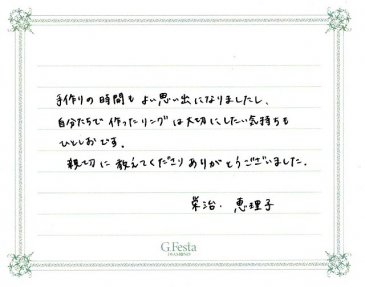 手作りの時間もよい思い出になりましたし、
自分たちで作ったリングは大切にしたい気持ちも
ひとしおです。
親切に教えてくださりありがとうございました。
栄治・恵理子
G.Festa
DIAMOND